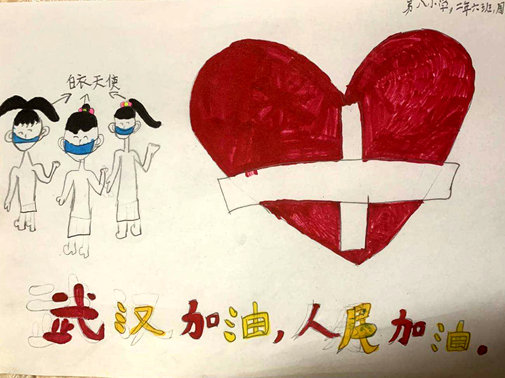 第八小学，二年六班，
白衣天使
武汉加油，人尾加油。